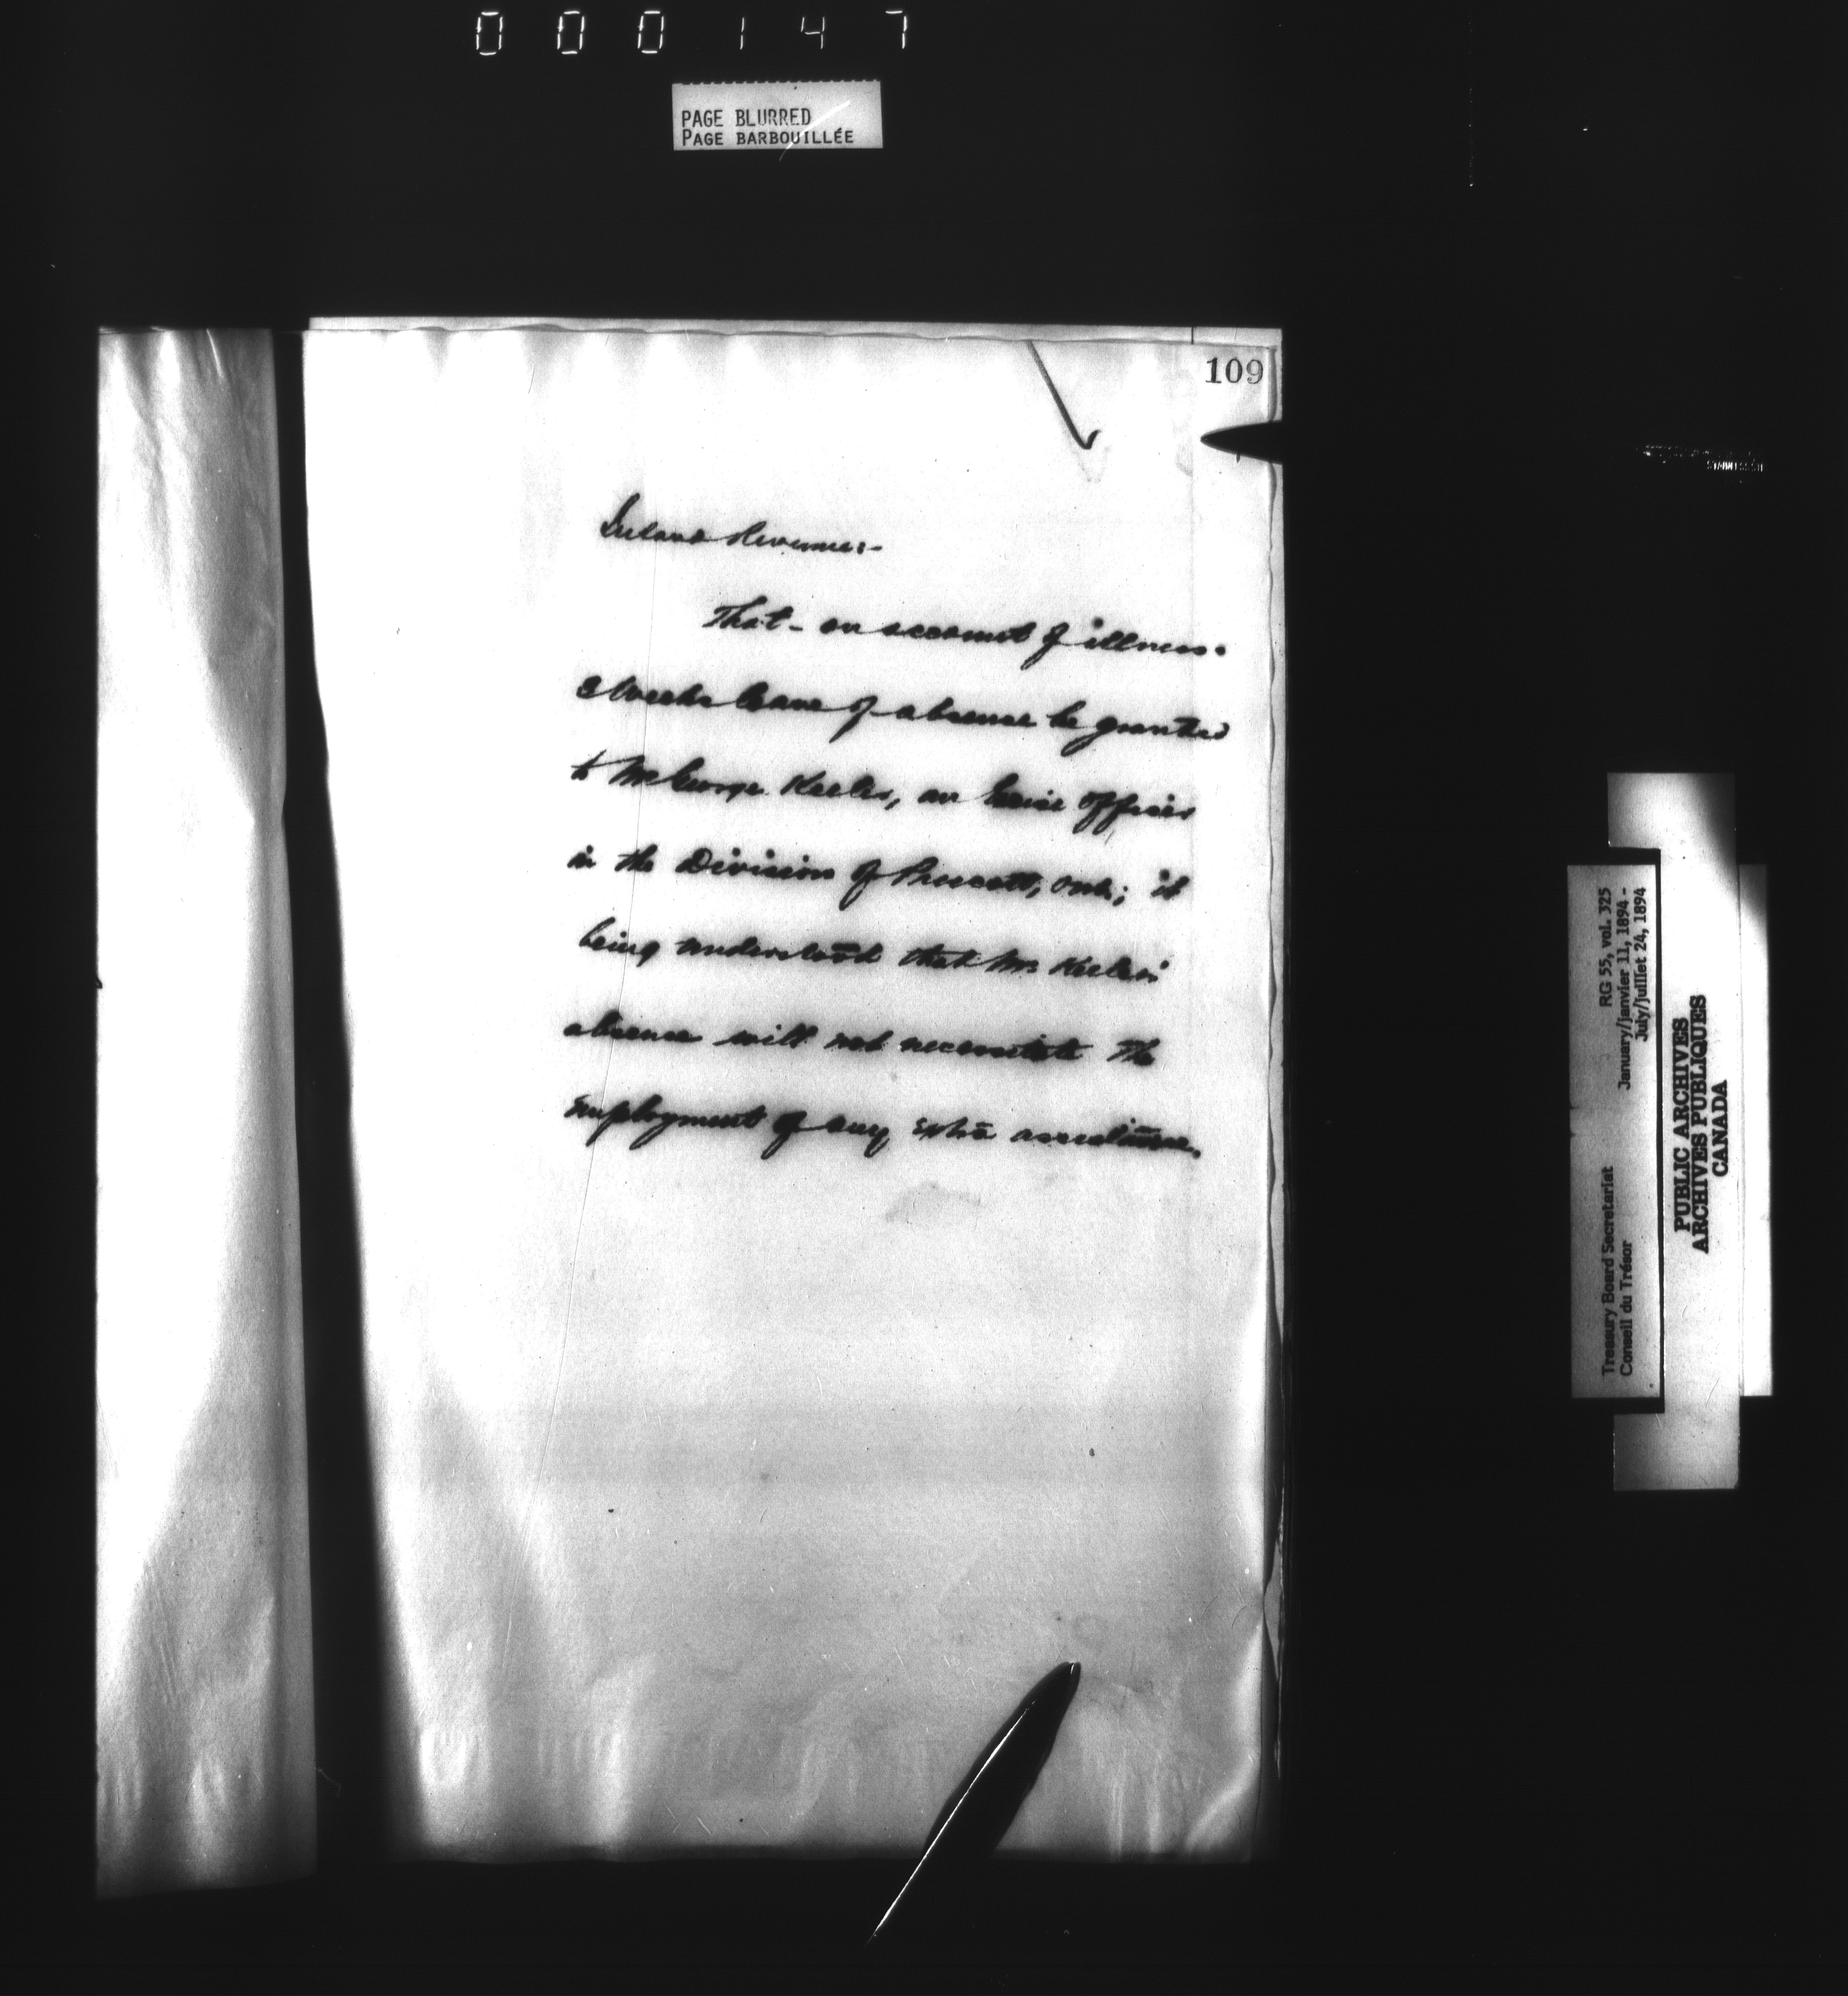 000147
PAGE BLURRED
PAGE BARBOUILLÉE
109
Inland Revenue:-
That - on account of illness -
weeks leave of absence be granted
to Mr George Keeler, an Excise Officer
in the Division of Prescott, Ont; it
being understood that Mr Keeler's
absence will not necessitate the
employment of any extra assistance.
RG 55, vol. 325
January/janvier 11, 1894 -
July/juillet 24, 1894
Treasury Board Secretariat
Conseil du Trésor
PUBLIC ARCHIVES
ARCHIVES PUBLIQUES
CANADA